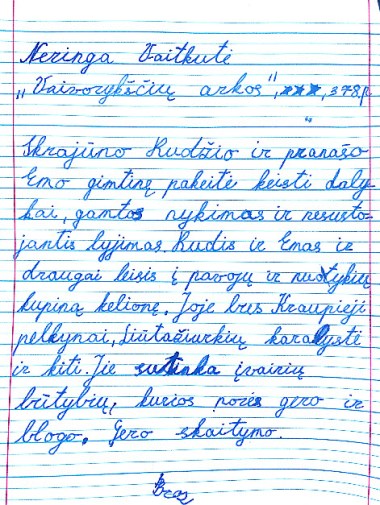 Neringa Vaitkutė
„Vaivorykščių arkos", 378p
"
Skrajūno Rudžio ir pranašo
Emo gimtinę pakeitė keisti daly-
kai, gamtos nykimas ir nesusto-
jantis lyjimas. Rudis ir Emas ir
draugai leisis į pavojų ir nuotykių
kupiną kelionę. Joje bus Kraupieji
pelkynai, Liūtažiurkių karalystė
ir kiti. Jie sutinka įvairių
būtybių, kurios norės gero ir
blogo. Gero skaitymo.